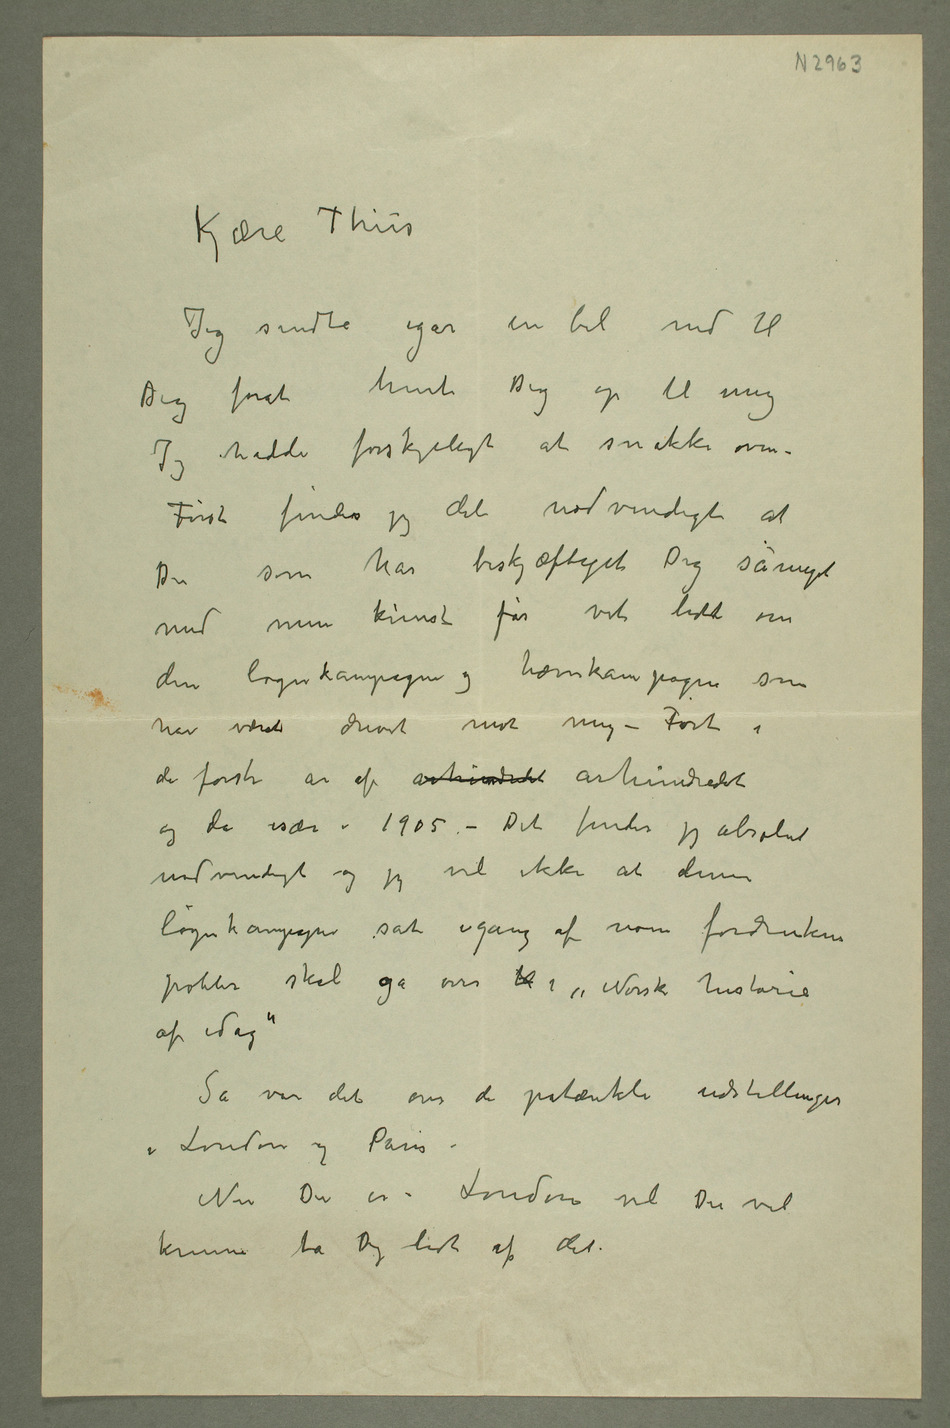 N 2963
Kjære Thiis
Jeg sendte igår en bil ned til
Dig forat hente Dig op til mig
Jeg hadde forskjelligt at snakke om –
Først finder jeg det nødvendigt at
Du som har beskjæftiget Dig såmeget
med min kunst får vite lidt om
den løgnkampagne og hævnkampagne som
har været drevet mot mig – Ført i
de første år af århundredet århundredet
og da især i 1905. – Det finder jeg absolut
nødvendigt og jeg vil ikke at denne
løgnkampagne sat igang af nogen fordrukne
pøbler skal gå over til i „Norsk historie
af idag"
Så var det om de påtænkte udstillinger
i London og Paris –
Når Du er i London vil Du vel
kunne ta Dig lidt af det.